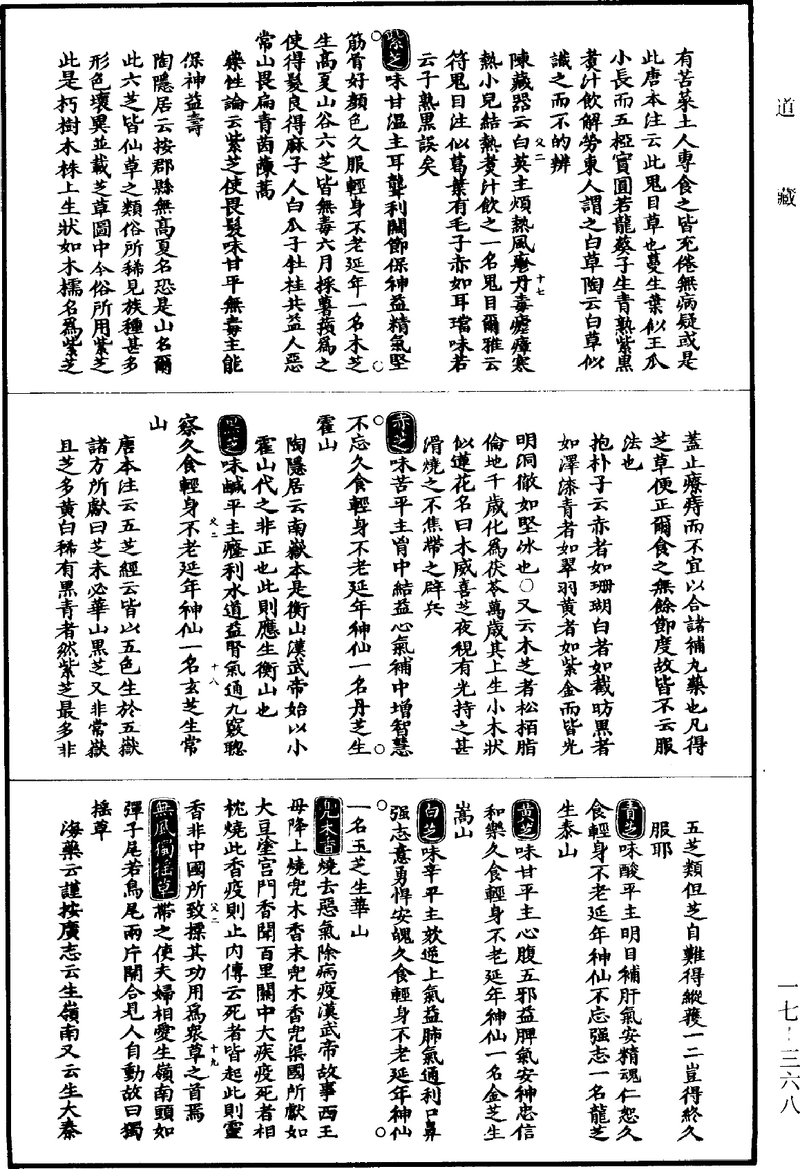 道藏
有苦菜土人專食之皆充倦無病疑或是
此唐本注云此鬼目草也蔓生葉似王瓜
小長而五椏實圓若龍葵子生青熟紫黑
煮汁飲解勞東人謂之白草陶云白草似
識之而不的辨
陳藏器云白英主煩熱風𤺋丹毒瘧瘴寒
熱小兒結熱煮汁飲之一名鬼目爾雅云
符鬼目注似葛葉有毛子赤如耳璫味若
云子熟黑誤矣
紫芝味甘温主耳聾利關節保神益精氣堅
筋骨好顔色久服輕身不老延年一名木芝
生高夏山谷六芝皆無毒六月採薯蕷爲之
使得髮良得麻子人白瓜子牡桂共益人惡
常山畏扁青茵蔯蒿
藥性論云紫芝使畏髮味甘平無毒主能
保神益壽
陶隱居云按郡縣無高夏名恐是山名爾
此六芝皆仙草之類俗所稀見族種甚多
形色壞異並載芝草圖中今俗所用紫芝
此是朽樹木株上生狀如木檽名爲紫芝
蓋止療痔而不宜以合諸補丸藥也凡得
芝草便正爾食之無餘節度故皆不云服
法也
抱朴子云赤者如珊瑚白者如截昉黑者
如澤漆青者如翠羽黄者如紫金而皆光
明洞徹如堅冰也○又云木芝者松栢脂
倫地千歲化爲茯苓萬歲其上生小木狀
似蓮花名曰木威喜芝夜視有光持之甚
滑燒之不焦帶之辟兵
赤芝味苦平主胷中結益心氣補中增智慧
不忘久食輕身不老延年神仙一名丹芝生
霍山
陶隱居云南嶽本是衡山漢武帝始以小
霍山代之非正也此則應生衡山也
黑芝味鹹平主癃利水道益腎氣通九竅聰
察久食輕身不老延年神仙一名玄芝生常
山
唐本注云五芝經云皆以五色生於五嶽
諸方所獻曰芝未必華山黑芝又非常嶽
且芝多黄白稀有黑青者然紫芝最多非
五芝類但芝自難得縱獲一二豈得終久
服耶
青芝味酸平主明目補肝氣安精魂仁恕久
食輕身不老延年神仙不忘强志一名龍芝
生泰山
黄芝味甘平主心腹五邪益脾氣安神忠信
和樂久食輕身不老延年神仙一名金芝生
嵩山
白芝味辛平主欬逆上氣益肺氣通利口鼻
强志意勇悍安魄久食輕身不老延年神仙
一名玉芝生華山
兜木香燒去惡氣除病疫漢武帝故事西王
母降上燒兜木香末兜木香兜渠國所獻如
大豆塗宫門香聞百里關中大疾疫死者相
枕燒此香疫則止内傳云死者皆起此則靈
香非中國所致標其功用爲衆草之首焉
無風獨揺草帶之使夫婦相愛生嶺南頭如
彈子尾若鳥尾兩片開合見人自動故曰獨
揺草
海藥云謹按廣志云生嶺南又云生大秦
一七-三六八